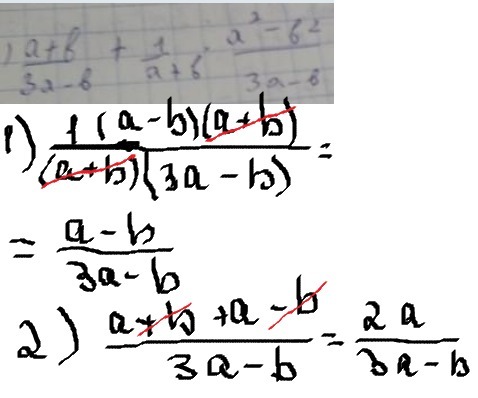 ) (a+b)/(3a-b) + 1/(a+b) · (a² - b²)/(3a-b)
1) (1(a-b)(a+b))/((a+b)(3a-b)) =
= (a-b)/(3a-b)
2) (a+b+a-b)/(3a-b) = 2a/(3a-b)